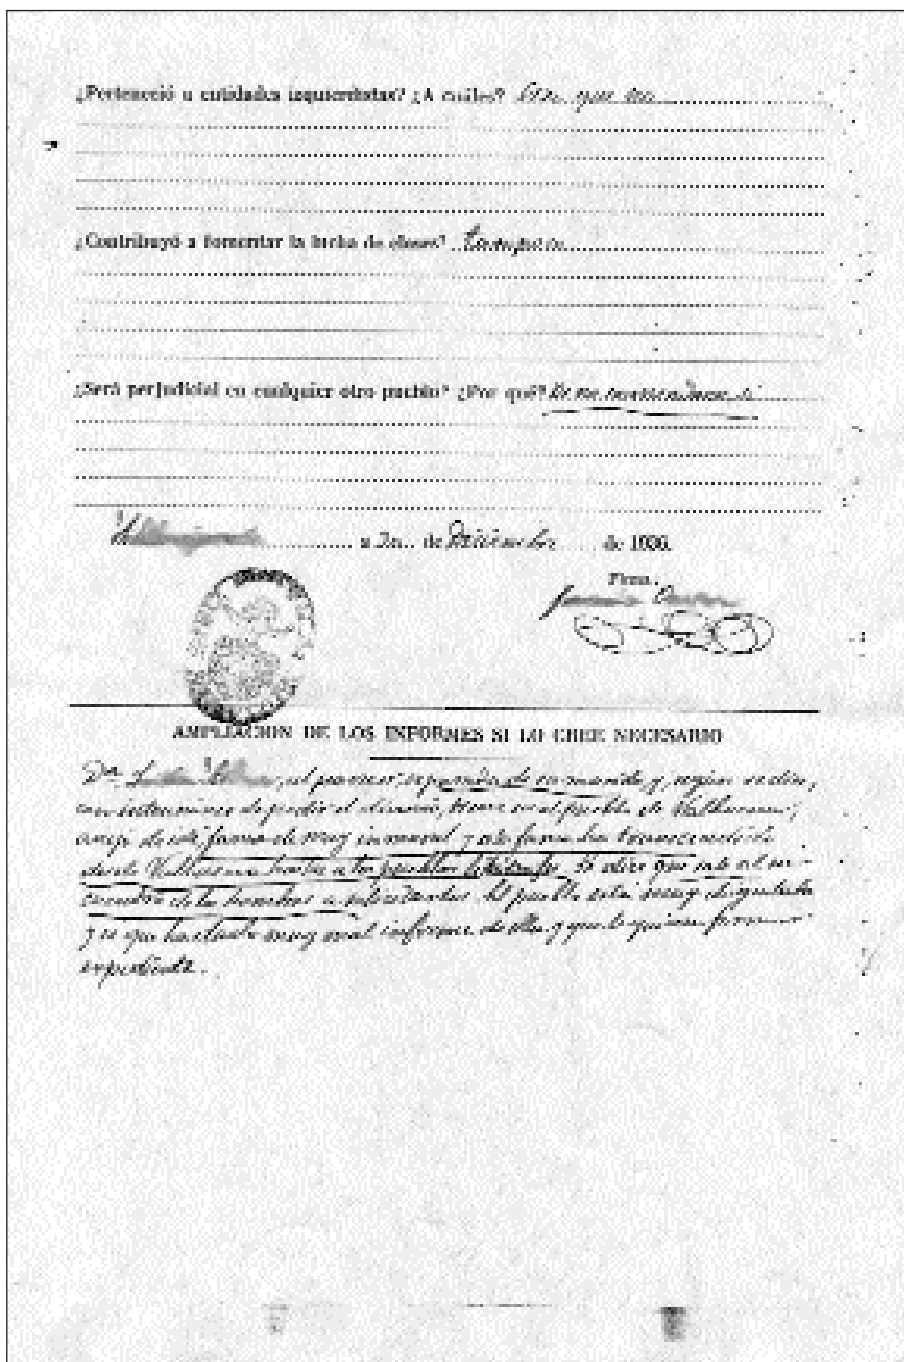 ¿Perteneció a entidades izquierdistas? ¿A cuáles? Creo que no
¿Contribuyó a fomentar la lucha de clases? Tampoco
¿Será perjudicial en cualquier otro pueblo? ¿Por qué? si
a 20 de Diciembre de 1936.
Firma,
AMPLIACION DE LOS INFORMES SI LO CREE NECESARIO
Dª, al parecer separada de su marido y, según se dice,
con intenciones de pedir el divorcio, tiene en el pueblo de
fama de muy inmoral y esta fama ha trascendido
desde hasta a los pueblos limítrofes. Se dice que sale al en-
cuentro de los hombres. El pueblo está muy disgustado
y se que han dado muy mal informe de ella y que le quieren formar
expediente.